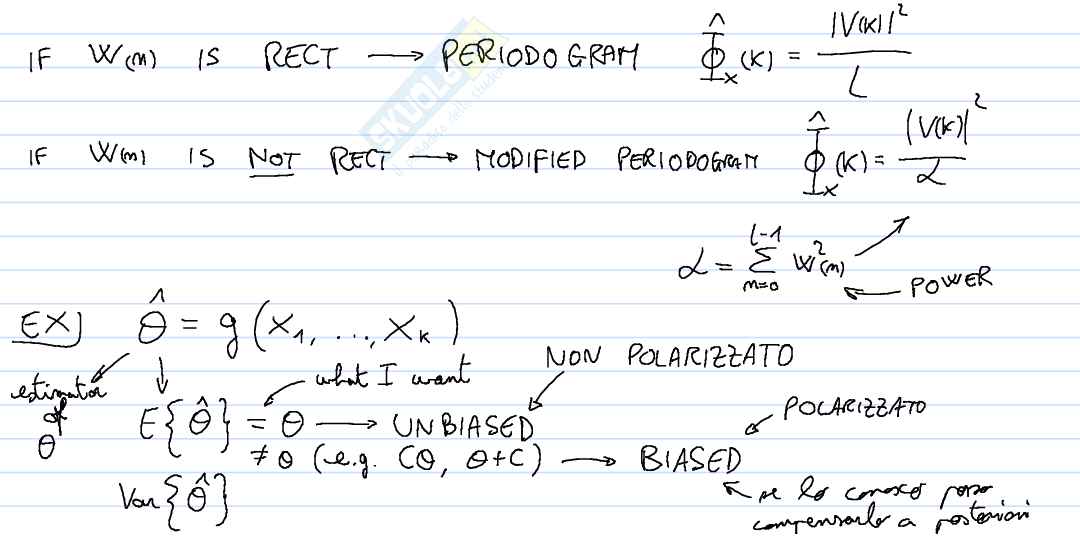 IF W(n) IS RECT → PERIODOGRAM Φ̂x(K) = |V(K)|² / L
IF W(n) IS NOT RECT → MODIFIED PERIODOGRAM Φ̂x(K) = |V(K)|² / α
α = Σ_{n=0}^{L-1} W²(n) ← POWER
EX) θ̂ = g(X₁, ..., X_K)
estimator of θ
what I want
NON POLARIZZATO
E{θ̂} = θ → UNBIASED
POLARIZZATO
≠ θ (e.g. Cθ, θ+C) → BIASED
Var{θ̂}
se lo conosco posso
compensarlo a posteriori
SKUOLA